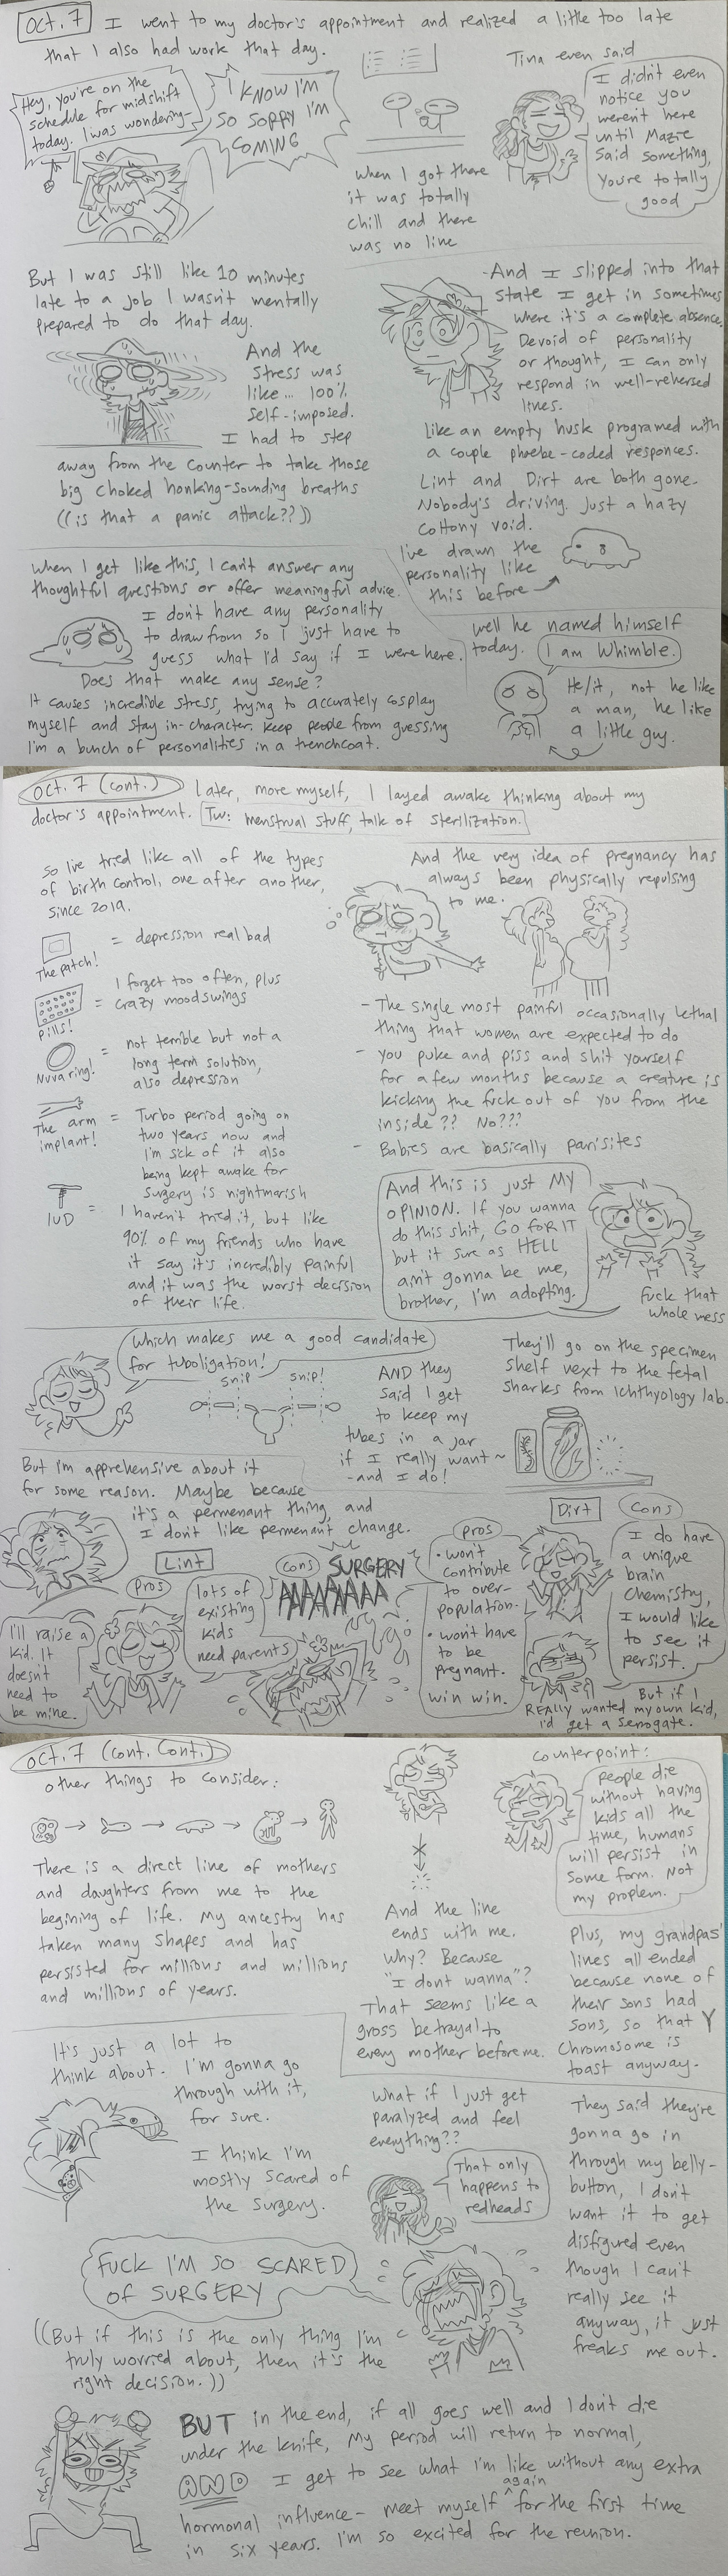 Oct. 7 I went to my doctor's appointment and realized a little too late
that I also had work that day.
Hey, you're on the
schedule for midshift
today. I was wondering-
I KNOW I'M
SO SORRY I'M
COMING
when I got there
it was totally
chill and there
was no line
Tina even said
I didn't even
notice you
weren't here
until Mazie
said something,
you're totally
good
But I was still like 10 minutes
late to a job I wasn't mentally
prepared to do that day.
And the
stress was
like... 100%
self-imposed.
I had to step
away from the counter to take those
big choked honking-sounding breaths
((is that a panic attack??))
-And I slipped into that
state I get in sometimes
where it's a complete absence.
Devoid of personality
or thought, I can only
respond in well-rehersed
lines.
Like an empty husk programed with
a couple phoebe-coded responces.
Lint and Dirt are both gone.
Nobody's driving. Just a hazy
cottony void.
I've drawn the
personality like
this before
when I get like this, I can't answer any
thoughtful questions or offer meaningful advice.
I don't have any personality
to draw from so I just have to
guess what I'd say if I were here.
Does that make any sense?
It causes incredible stress, trying to accurately cosplay
myself and stay in-character. Keep people from guessing
I'm a bunch of personalities in a trenchcoat.
well he named himself
today.
I am Whimble.
He/it, not he like
a man, he like
a little guy.
Oct. 7 (cont.) Later, more myself, I layed awake thinking about my
doctor's appointment. Tw: menstrual stuff, talk of sterilization.
So I've tried like all of the types
of birth control, one after another,
since 2019.
The patch!
= depression real bad
Pills!
= I forget too often, plus
crazy moodswings
Nuvaring!
= not terrible but not a
long term solution,
also depression
The arm
implant!
= Turbo period going on
two years now and
I'm sick of it also
being kept awake for
surgery is nightmarish
IUD
= I haven't tried it, but like
90% of my friends who have
it say it's incredibly painful
and it was the worst decision
of their life.
And the very idea of pregnancy has
always been physically repulsing
to me.
- The single most painful occasionally lethal
thing that women are expected to do
- you puke and piss and shit yourself
for a few months because a creature is
kicking the fuck out of you from the
inside?? No???
- Babies are basically parisites
And this is just MY
OPINION. If you wanna
do this shit, GO FOR IT
but it sure as HELL
ain't gonna be me,
brother, I'm adopting.
fuck that
whole mess
which makes me a good candidate
for tuboligation!
snip
snip!
AND they
said I get
to keep my
tubes in a jar
if I really want~
-and I do!
They'll go on the specimen
shelf next to the fetal
sharks from Ichthyology lab.
But I'm apprehensive about it
for some reason. Maybe because
it's a permenant thing, and
I don't like permenant change.
Lint
Pros
I'll raise a
kid. It
doesn't
need to
be mine.
lots of
existing
kids
need parents
cons
SURGERY
AAAAAAAA
Dirt
Pros
• won't
contribute
to over-
population.
• won't have
to be
pregnant.
win win.
Cons
I do have
a unique
brain
chemistry,
I would like
to see it
persist.
But if I
REALLY wanted my own kid,
I'd get a serrogate.
Oct. 7 (cont. cont.)
other things to consider:
There is a direct line of mothers
and daughters from me to the
begining of life. My ancestry has
taken many shapes and has
persisted for millions and millions
and millions of years.
And the line
ends with me.
Why? Because
"I dont wanna"?
That seems like a
gross betrayal to
every mother before me.
counterpoint:
people die
without having
kids all the
time, humans
will persist in
some form. Not
my proplem.
Plus, my grandpas'
lines all ended
because none of
their sons had
sons, so that Y
Chromosome is
toast anyway.
It's just a lot to
think about. I'm gonna go
through with it,
for sure.
I think I'm
mostly scared of
the surgery.
What if I just get
paralyzed and feel
everything??
That only
happens to
redheads
They said they're
gonna go in
through my belly-
button, I don't
want it to get
disfigured even
though I can't
really see it
anyway, it just
freaks me out.
FUCK I'M SO SCARED
OF SURGERY
((But if this is the only thing I'm
truly worried about, then it's the
right decision.))
BUT in the end, if all goes well and I don't die
under the knife, my period will return to normal,
AND I get to see what I'm like without any extra
hormonal influence- meet myself again for the first time
in six years. I'm so excited for the reunion.